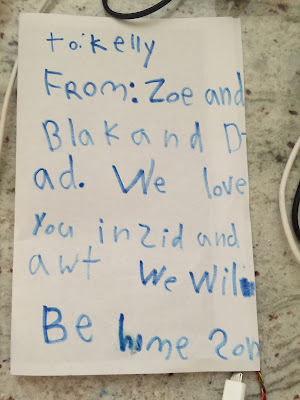 to: kelly
FROM: Zoe and
Blak and D-
ad. We love
You in zid and
awt We Will
Be home zon